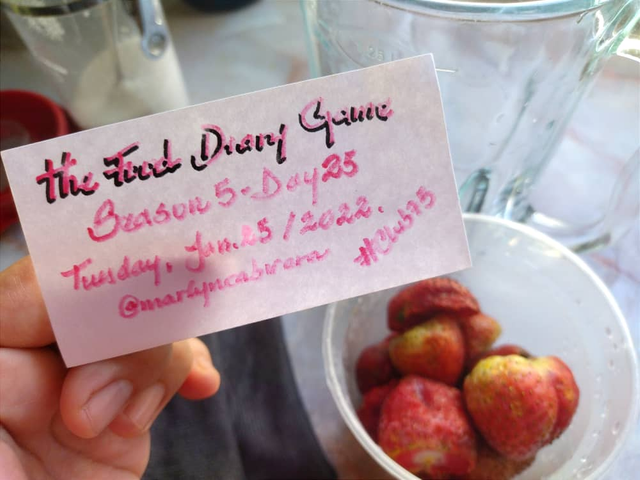 the Food Diary Game
Season 5-Day 25
Tuesday, Jan.25/2022.
@marlyncabrera
#Club75